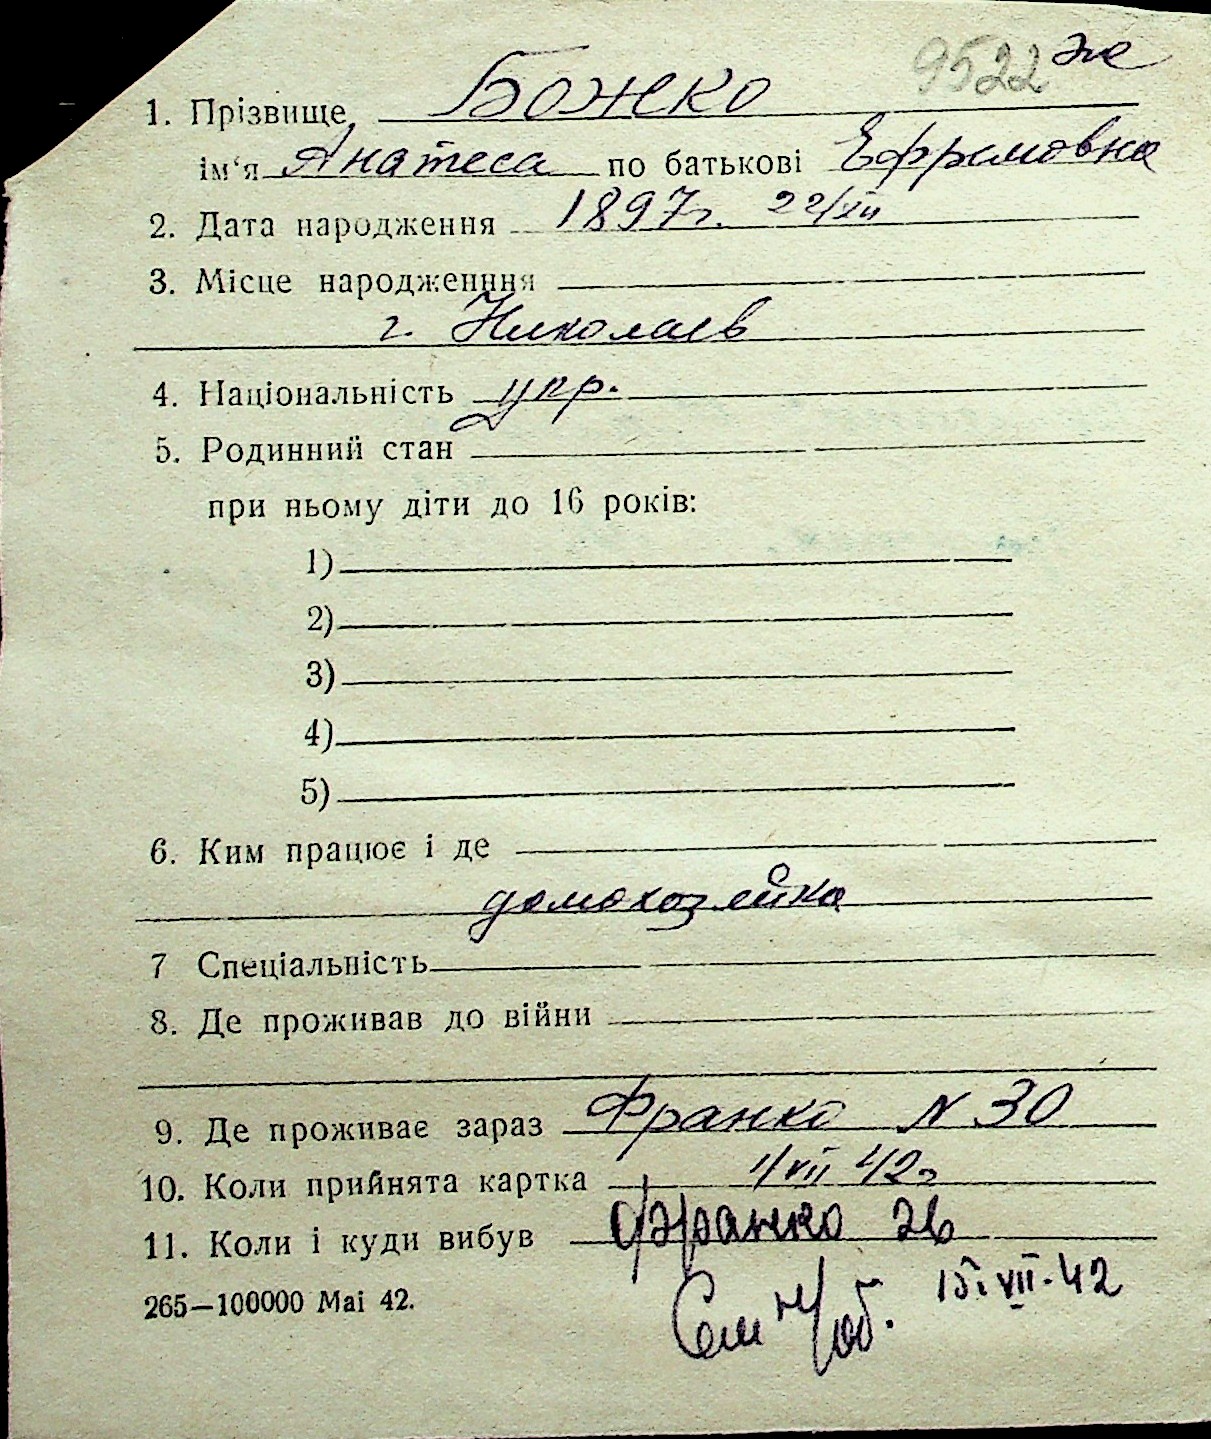 9522 же
1. Прізвище Божко
ім'я Анатеса по батькові Ефремовна
2. Дата народження 1897г. 22/XII
3. Місце народженння
г. Николаев
4. Національність укр.
5. Родинний стан
при ньому діти до 16 років:
1)
2)
3)
4)
5)
6. Ким працює і де
домохозяйка
7 Спеціальність
8. Де проживав до війни
9. Де проживає зараз Франко N 30
10. Коли прийнята картка 1/VII 42г
11. Коли і куди вибув Франко 26
265—100000 Mai 42. 15.VII.42